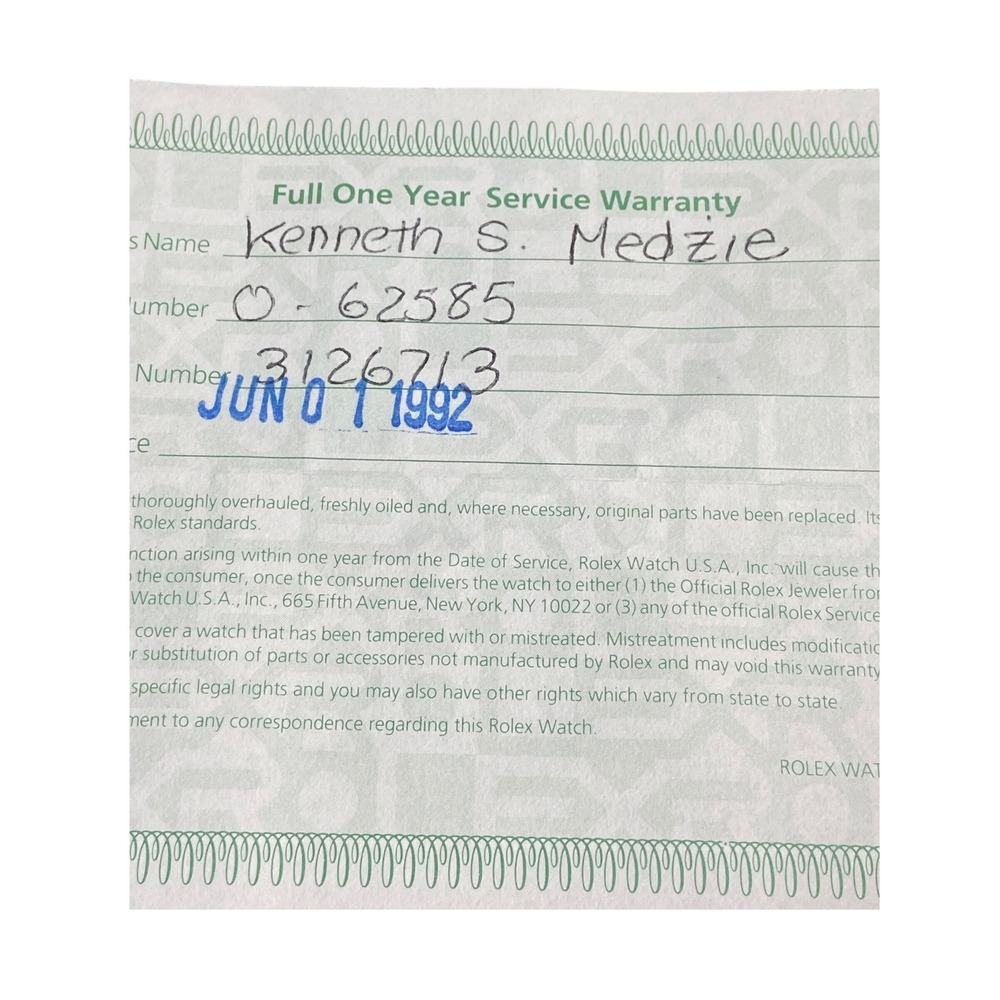 Full One Year Service Warranty
s Name Kenneth S. Medzie
umber O - 62585
Number 3126713
JUN 0 1 1992
ce
thoroughly overhauled, freshly oiled and, where necessary, original parts have been replaced. Its
Rolex standards.
nction arising within one year from the Date of Service, Rolex Watch U.S.A., Inc. will cause th
the consumer, once the consumer delivers the watch to either (1) the Official Rolex Jeweler from
Watch U.S.A., Inc., 665 Fifth Avenue, New York, NY 10022 or (3) any of the official Rolex Service
cover a watch that has been tampered with or mistreated. Mistreatment includes modificatio
r substitution of parts or accessories not manufactured by Rolex and may void this warranty
specific legal rights and you may also have other rights which vary from state to state.
ment to any correspondence regarding this Rolex Watch.
ROLEX WAT